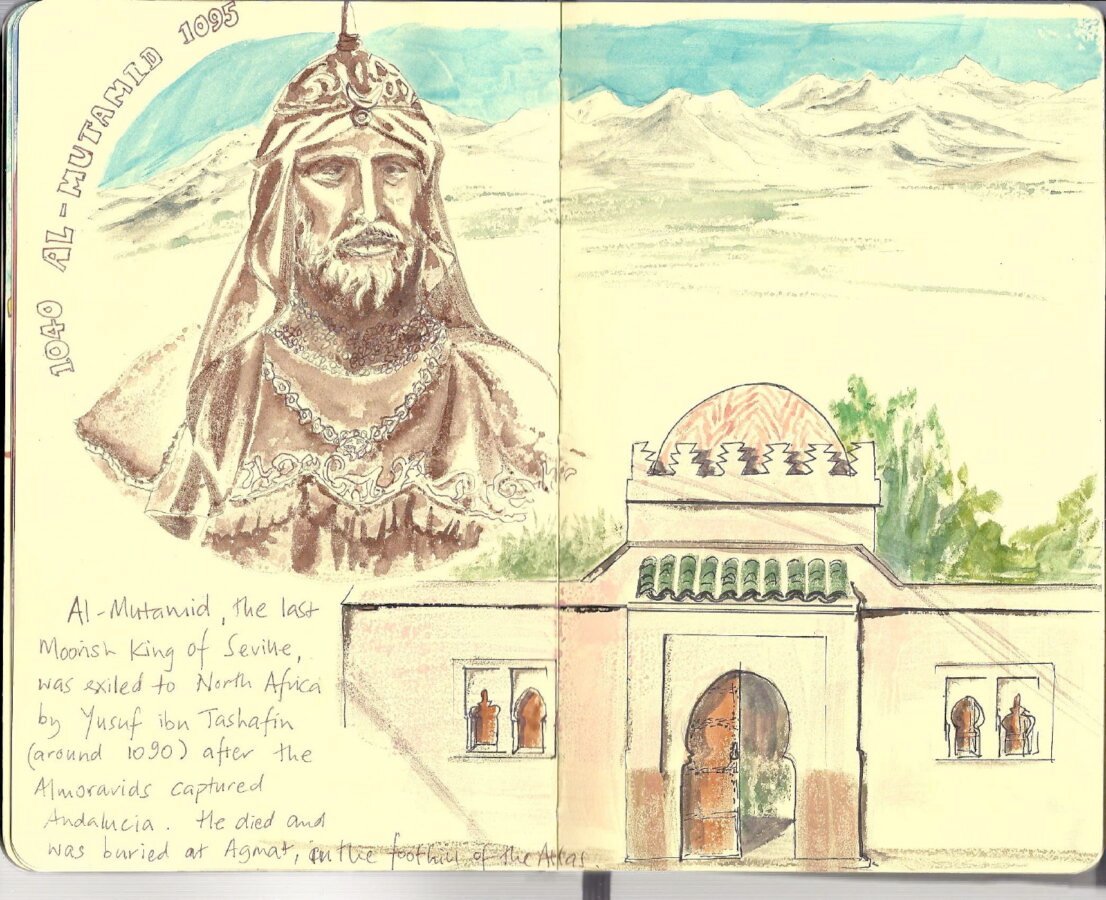 1040 AL-MUTAMID 1095
Al-Mutamid, the last
Moorish King of Seville,
was exiled to North Africa
by Yusuf ibn Tashafin
(around 1090) after the
Almoravids captured
Andalucia. He died and
was buried at Agmat, in the foothill of the Atlas.